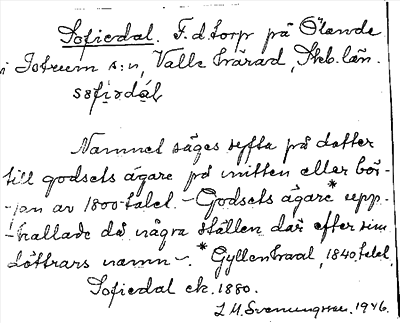 Sofiedal. F.d. torp på Ölanda
i Istrum s:n, Valle härad, Skb. län.
sofidál
Namnet säges syfta på dotter
till godsets ägare på mitten eller bör-
jan av 1800-talet. – Godsets ägare* upp-
kallade då några ställen där efter sina
döttrars namn –. * Gyllenhaal, 1840-talet.
Sofiedal ek. 1880.
L. M. Svenungsson. 1946.